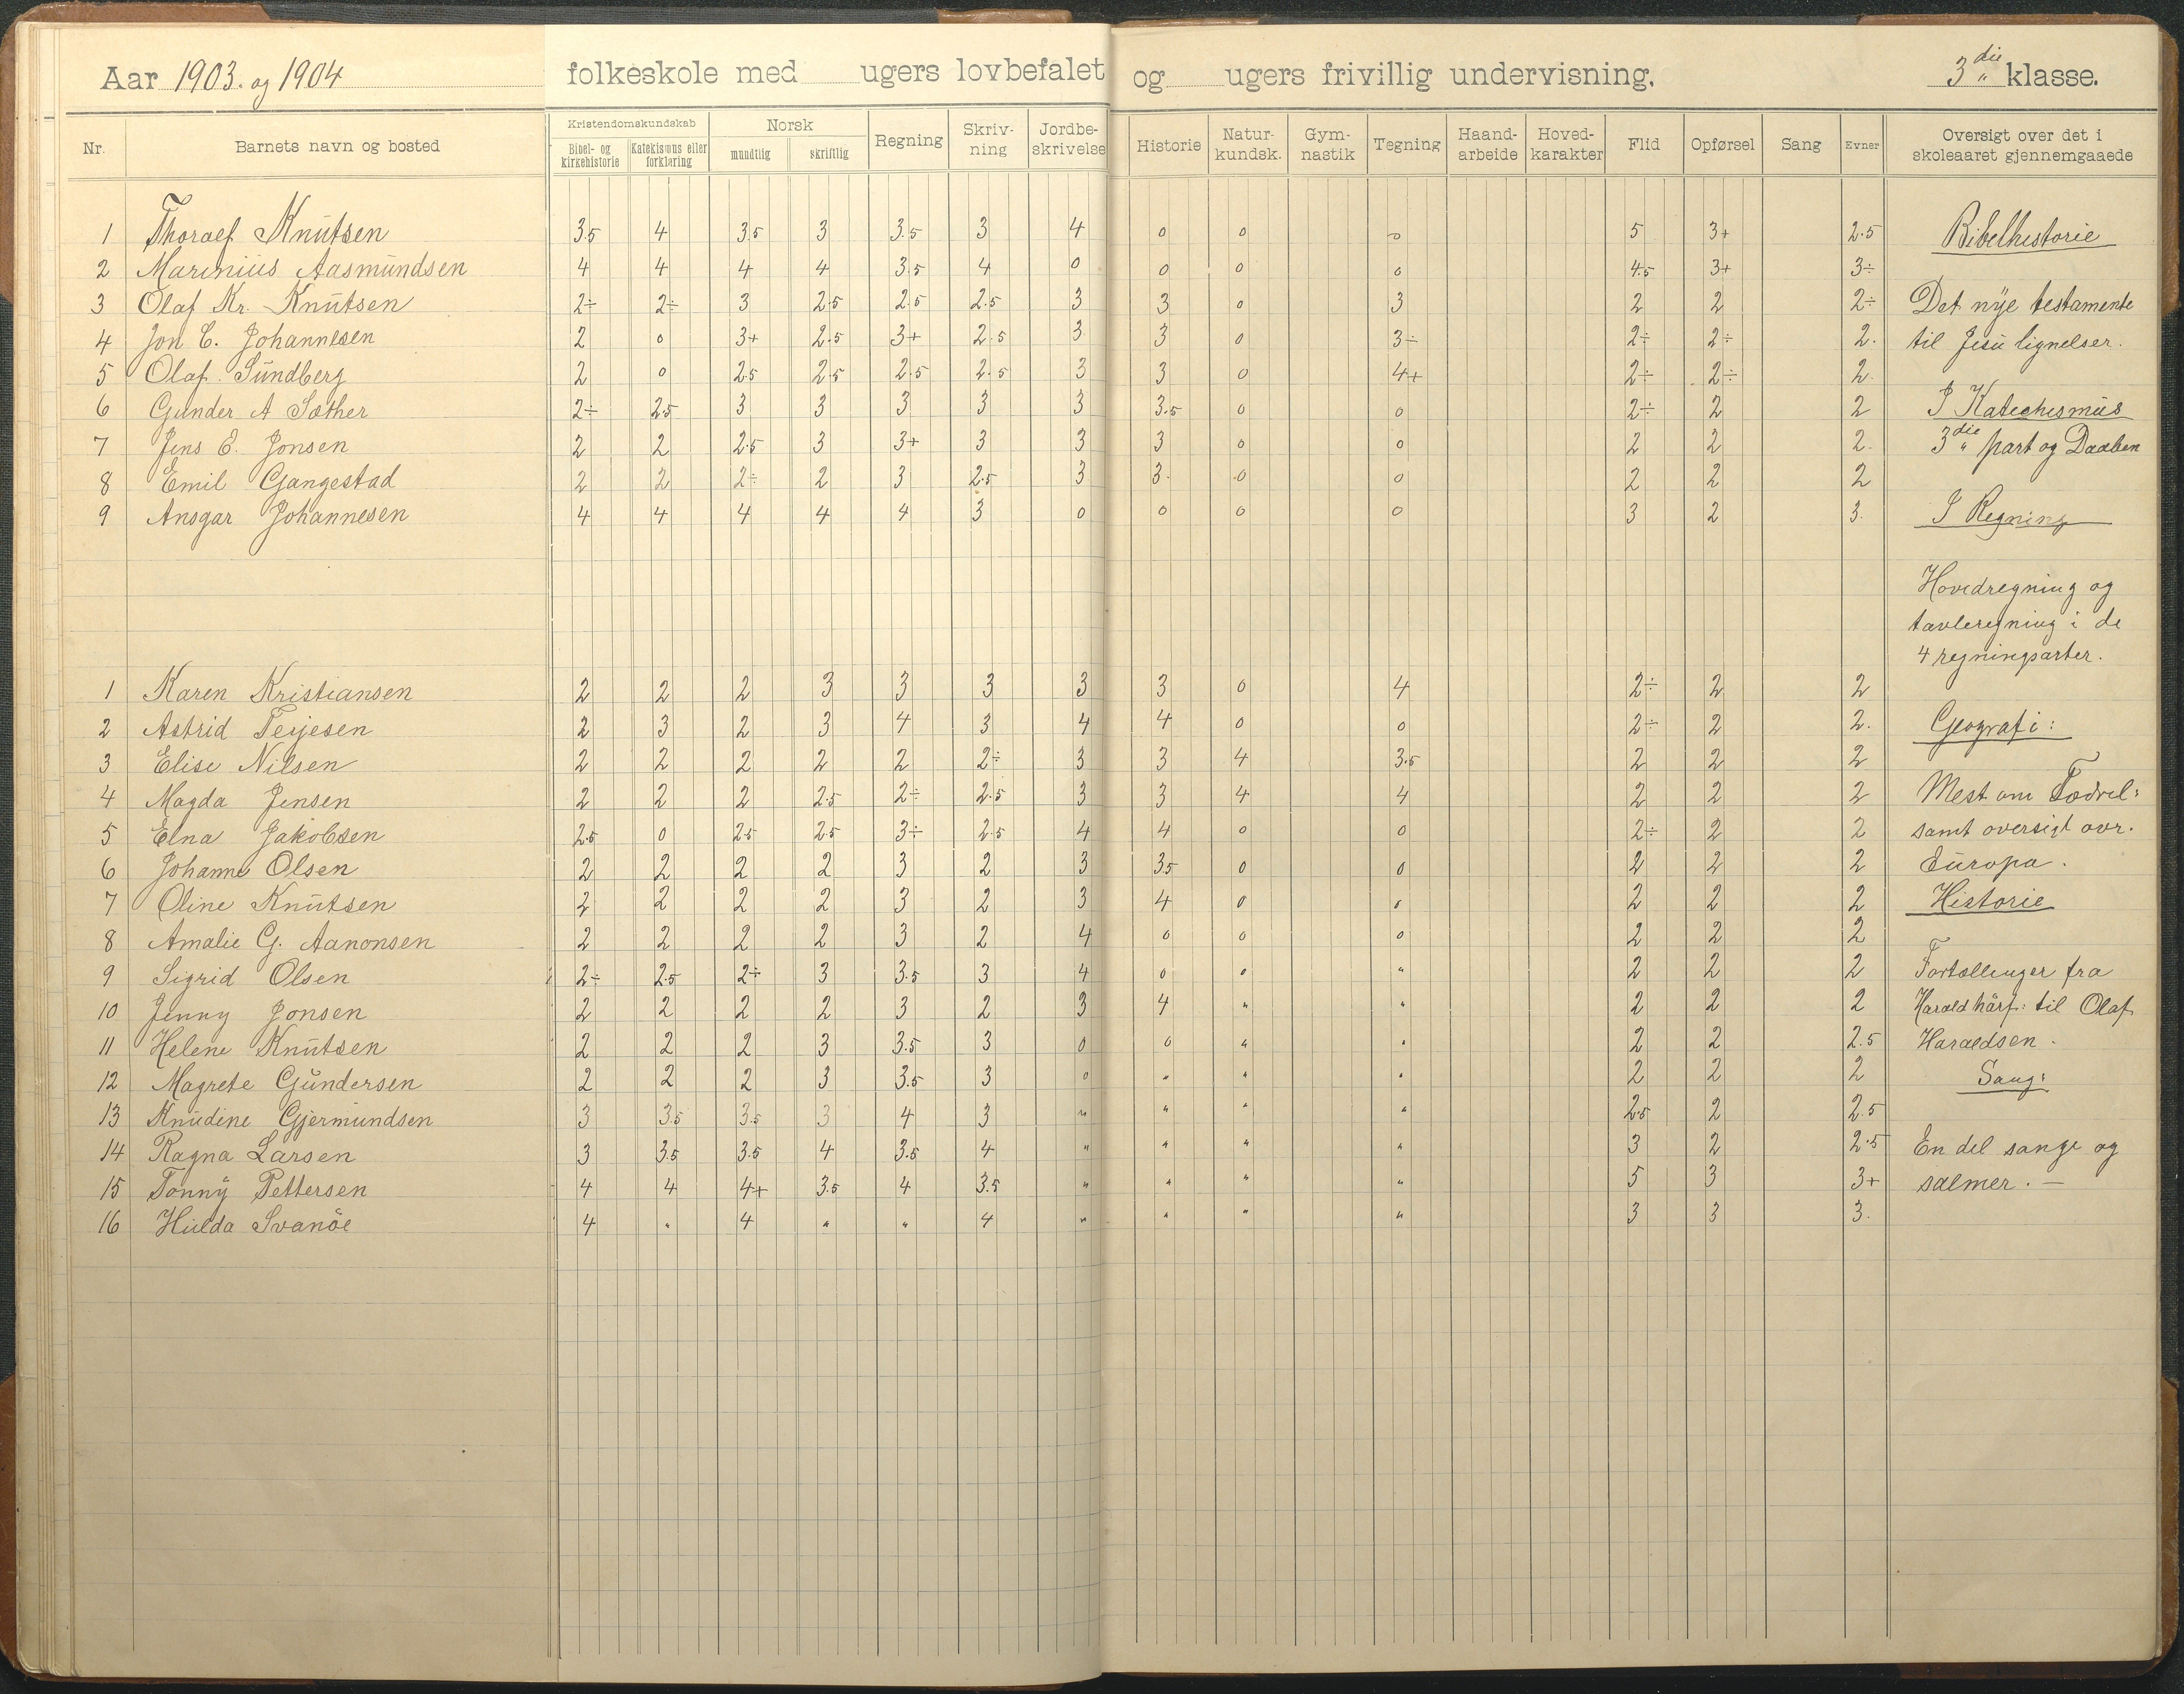 Aar 1903. og 1904 folkeskole med ugers lovbefalet og ugers frivillig undervisning. 3die klasse.
Nr. Barnets navn og bosted Kristendomskundskab Norsk Regning Skriv- ning Jordbe- skrivelse Historie Natur- kundsk. Gym- nastik Tegning Haand- arbeide Hoved- karakter Flid Opførsel Sang Evner Oversigt over det i skoleaaret gjennemgaaede
Bibel- og kirkehistorie Katekismus eller forklaring mundtlig skriftlig
1 Thoralf Knutsen 3.5 4 3.5 3 3.5 3 4 0 0 0 5 3+ 2.5 Bibelhistorie
2 Marinius Aasmundsen 4 4 4 4 3.5 4 0 0 0 0 4.5 3+ 3÷
3 Olaf Kr. Knutsen 2÷ 2÷ 3 2.5 2.5 2.5 3 3 0 3 2 2 2÷ Det nye testamente
4 Jon C. Johannesen 2 0 3+ 2.5 3+ 2.5 3 3 0 3÷ 2÷ 2÷ 2. til Jesu lignelser.
5 Olaf. Sundberg 2 0 2.5 2.5 2.5 2.5 3 3 0 4+ 2÷ 2÷ 2.
6 Gunder A Sæther 2÷ 2.5 3 3 3 3 3 3.5 0 0 2÷ 2 2 I Katechismus
7 Jens E. Jonsen 2 2 2.5 3 3+ 3 3 3 0 0 2 2 2. 3die part og Daaben
8 Emil Gangestad 2 2 2÷ 2 3 2.5 3 3. 0 0 2 2 2
9 Ansgar Johannesen 4 4 4 4 4 3 0 0 0 0 3 2 3. I Regning
Hovedregning og
tavleregning i de
4 regningsarter.
1 Karen Kristiansen 2 2 2 3 3 3 3 3 0 4 2÷ 2 2
2 Astrid Terjesen 2 3 2 3 4 3 4 4 0 0 2÷ 2 2. Geografi:
3 Elise Nilsen 2 2 2 2 2 2÷ 3 3 4 3.5 2 2 2
4 Magda Jensen 2 2 2 2.5 2÷ 2.5 3 3 4 4 2 2 2 Mest om Fædrel:
5 Elna Jakobsen 2.5 0 2.5 2.5 3÷ 2.5 4 4 0 0 2÷ 2 2 samt oversigt ovr.
6 Johanne Olsen 2 2 2 2 3 2 3 3.5 0 0 2 2 2 Europa.
7 Oline Knutsen 2 2 2 2 3 2 3 4 0 0 2 2 2 Historie
8 Amalie G. Aanonsen 2 2 2 2 3 2 4 0 0 0 2 2 2
9 Sigrid Olsen 2÷ 2.5 2÷ 3 3.5 3 4 0 0 " 2 2 2 Fortællinger fra
10 Jenny Jonsen 2 2 2 2 3 2 3 4 " " 2 2 2 Harald hårf: til Olaf
11 Helene Knutsen 2 2 2 3 3.5 3 0 0 " " 2 2 2.5 Haraldsen.
12 Magrete Gundersen 2 2 2 3 3.5 3 0 " " " 2 2 2 Sang:
13 Knudine Gjermundsen 3 3.5 3.5 3 4 3 " " " " 2.5 2 2.5
14 Ragna Larsen 3 3.5 3.5 4 3.5 4 " " " " 3 2 2.5 En del sange og
15 Tonny Pettersen 4 4 4+ 3.5 4 3.5 " " " " 5 3 3+ salmer. —
16 Hulda Svanöe 4 " 4 " " 4 " " " " 3 3 3.